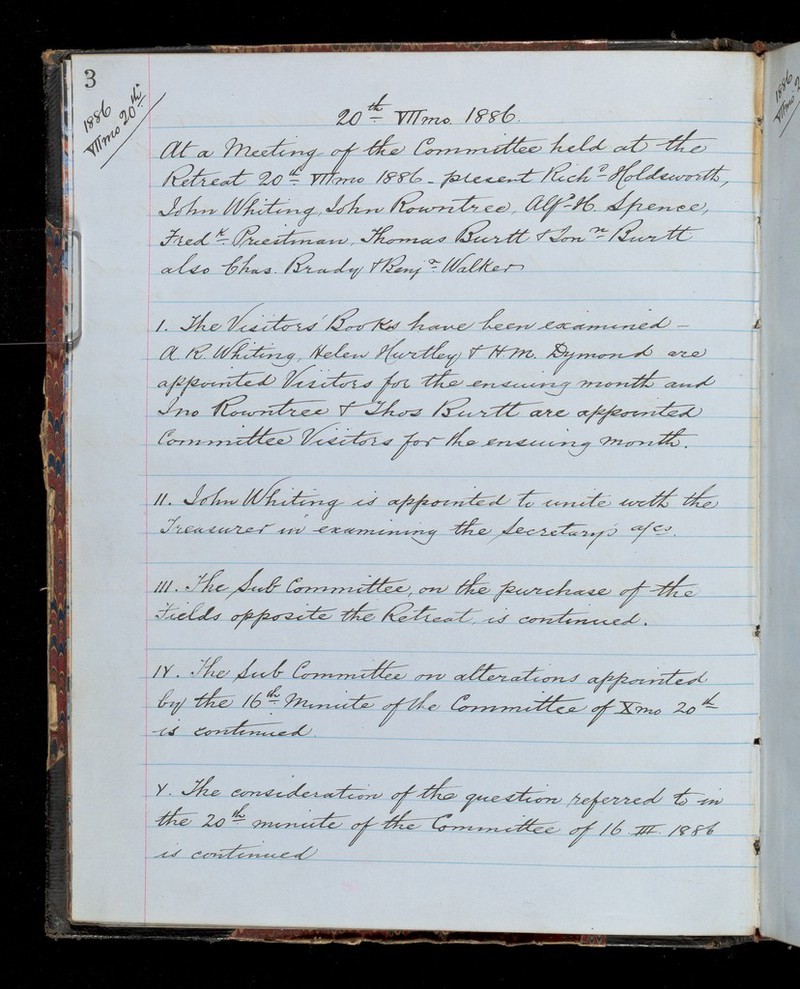 3
1886
VIImo 20th
20th VIImo. 1886.
At a Meeting of the Committee held at the
Retreat 20th VIImo 1886 - present Richd Holdsworth,
John Whiting, John Rowntree, Alfd H. Spence,
Fredk Priestman, Thomas Burtt & Jonn Burtt
also Chas. Brady & Benjn Walker
I. The Visitors' Books have been examined -
A R. Whiting, Helen Hurtley & H M. Dymond are
appointed Visitors for the ensuing month and
Jno Rowntree & Thos Burtt are appointed
Committee Visitors for the ensuing month.
II. John Whiting is appointed to unite with the
Treasurer in examining the Secretary's a/cs.
III. The Sub Committee, on the purchase of the
Fields opposite the Retreat, is continued.
IV. The Sub Committee on alterations appointed
by the 16th Minute of the Committee of Xmo 20th
is continued.
V. The consideration of the question referred to in
the 20th minute of the Committee of 16 III. 1886
is continued
1886
VIImo 2